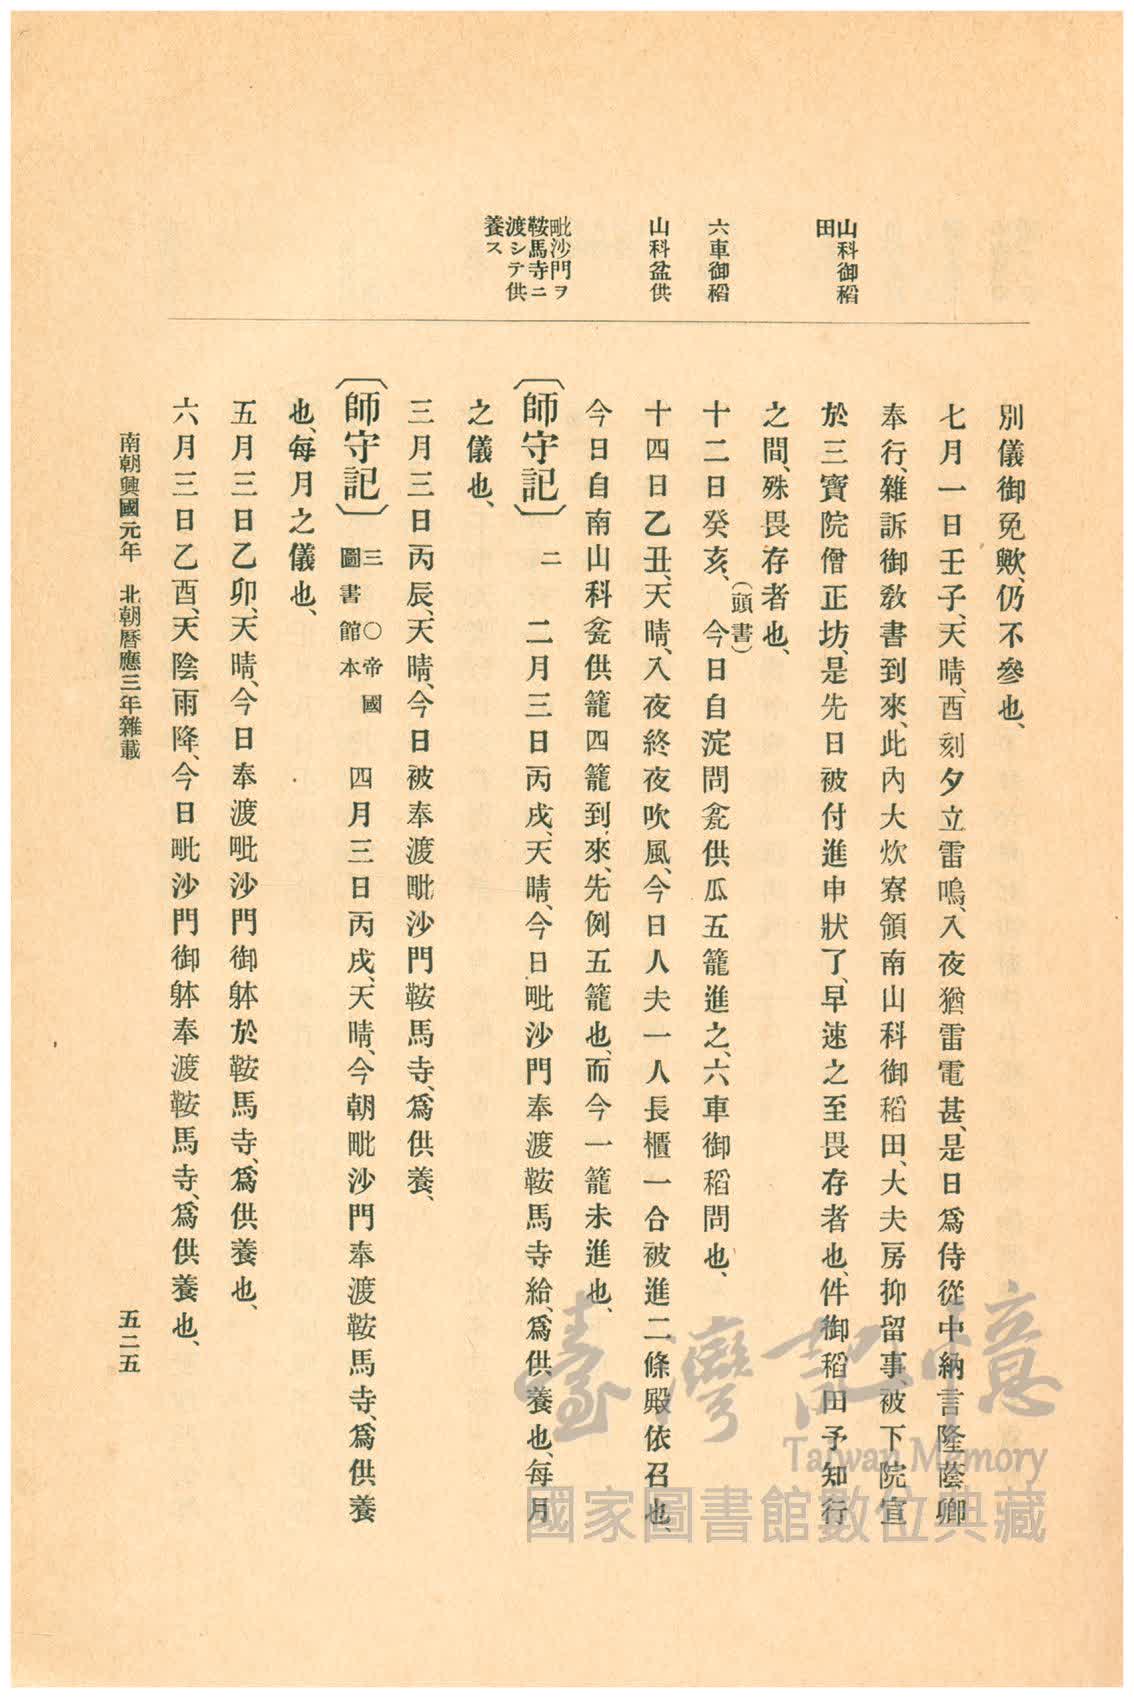 山科御稻
田
六車御稻
山科盆供
毗沙門ヲ
鞍馬寺ニ
渡シテ供
養ス
別儀御免歟、仍不參也、
七月一日壬子、天晴、酉刻夕立雷鳴、入夜猶雷電甚、是日爲侍從中納言隆蔭卿
奉行、雜訴御敎書到來、此內大炊寮領南山科御稻田、大夫房抑留事、被下院宣
於三寶院僧正坊、是先日被付進申狀了、早速之至畏存者也、件御稻田予知行
之間、殊畏存者也、
十二日癸亥、(頭書)今日自淀問瓫供瓜五籠進之、六車御稻問也、
十四日乙丑、天晴、入夜終夜吹風、今日人夫一人長櫃一合被進二條殿依召也、
今日自南山科瓫供籠四籠到來、先例五籠也、而今一籠未進也、
〔師守記〕二 二月三日丙戌、天晴、今日毗沙門奉渡鞍馬寺給、爲供養也、每月
之儀也、
三月三日丙辰、天晴、今日被奉渡毗沙門鞍馬寺、爲供養、
〔師守記〕三〇帝國圖書館本 四月三日丙戌、天晴、今朝毗沙門奉渡鞍馬寺、爲供養
也、每月之儀也、
五月三日乙卯、天晴、今日奉渡毗沙門御躰於鞍馬寺、爲供養也、
六月三日乙酉、天陰雨降、今日毗沙門御躰奉渡鞍馬寺、爲供養也、
南朝興國元年 北朝曆應三年雜載
五二五
臺灣記憶
Taiwan Memory
國家圖書館數位典藏